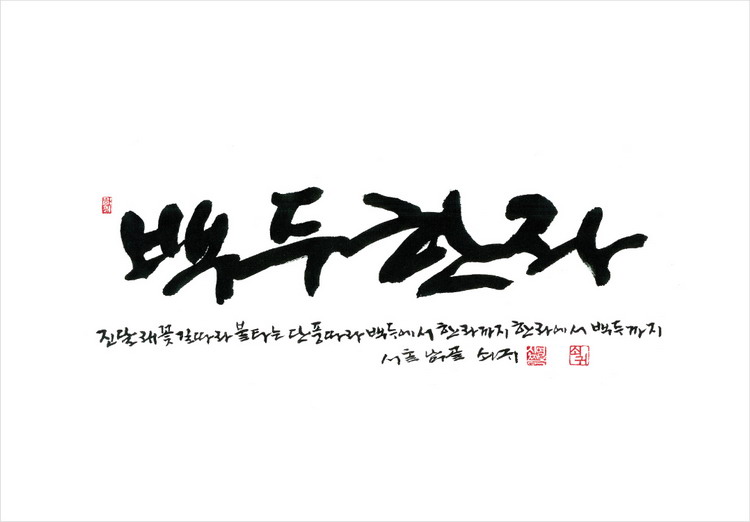 백두한라
진달래꽃길따라 불타는 단풍따라 백두에서 한라까지 한라에서 백두까지
쇠귀